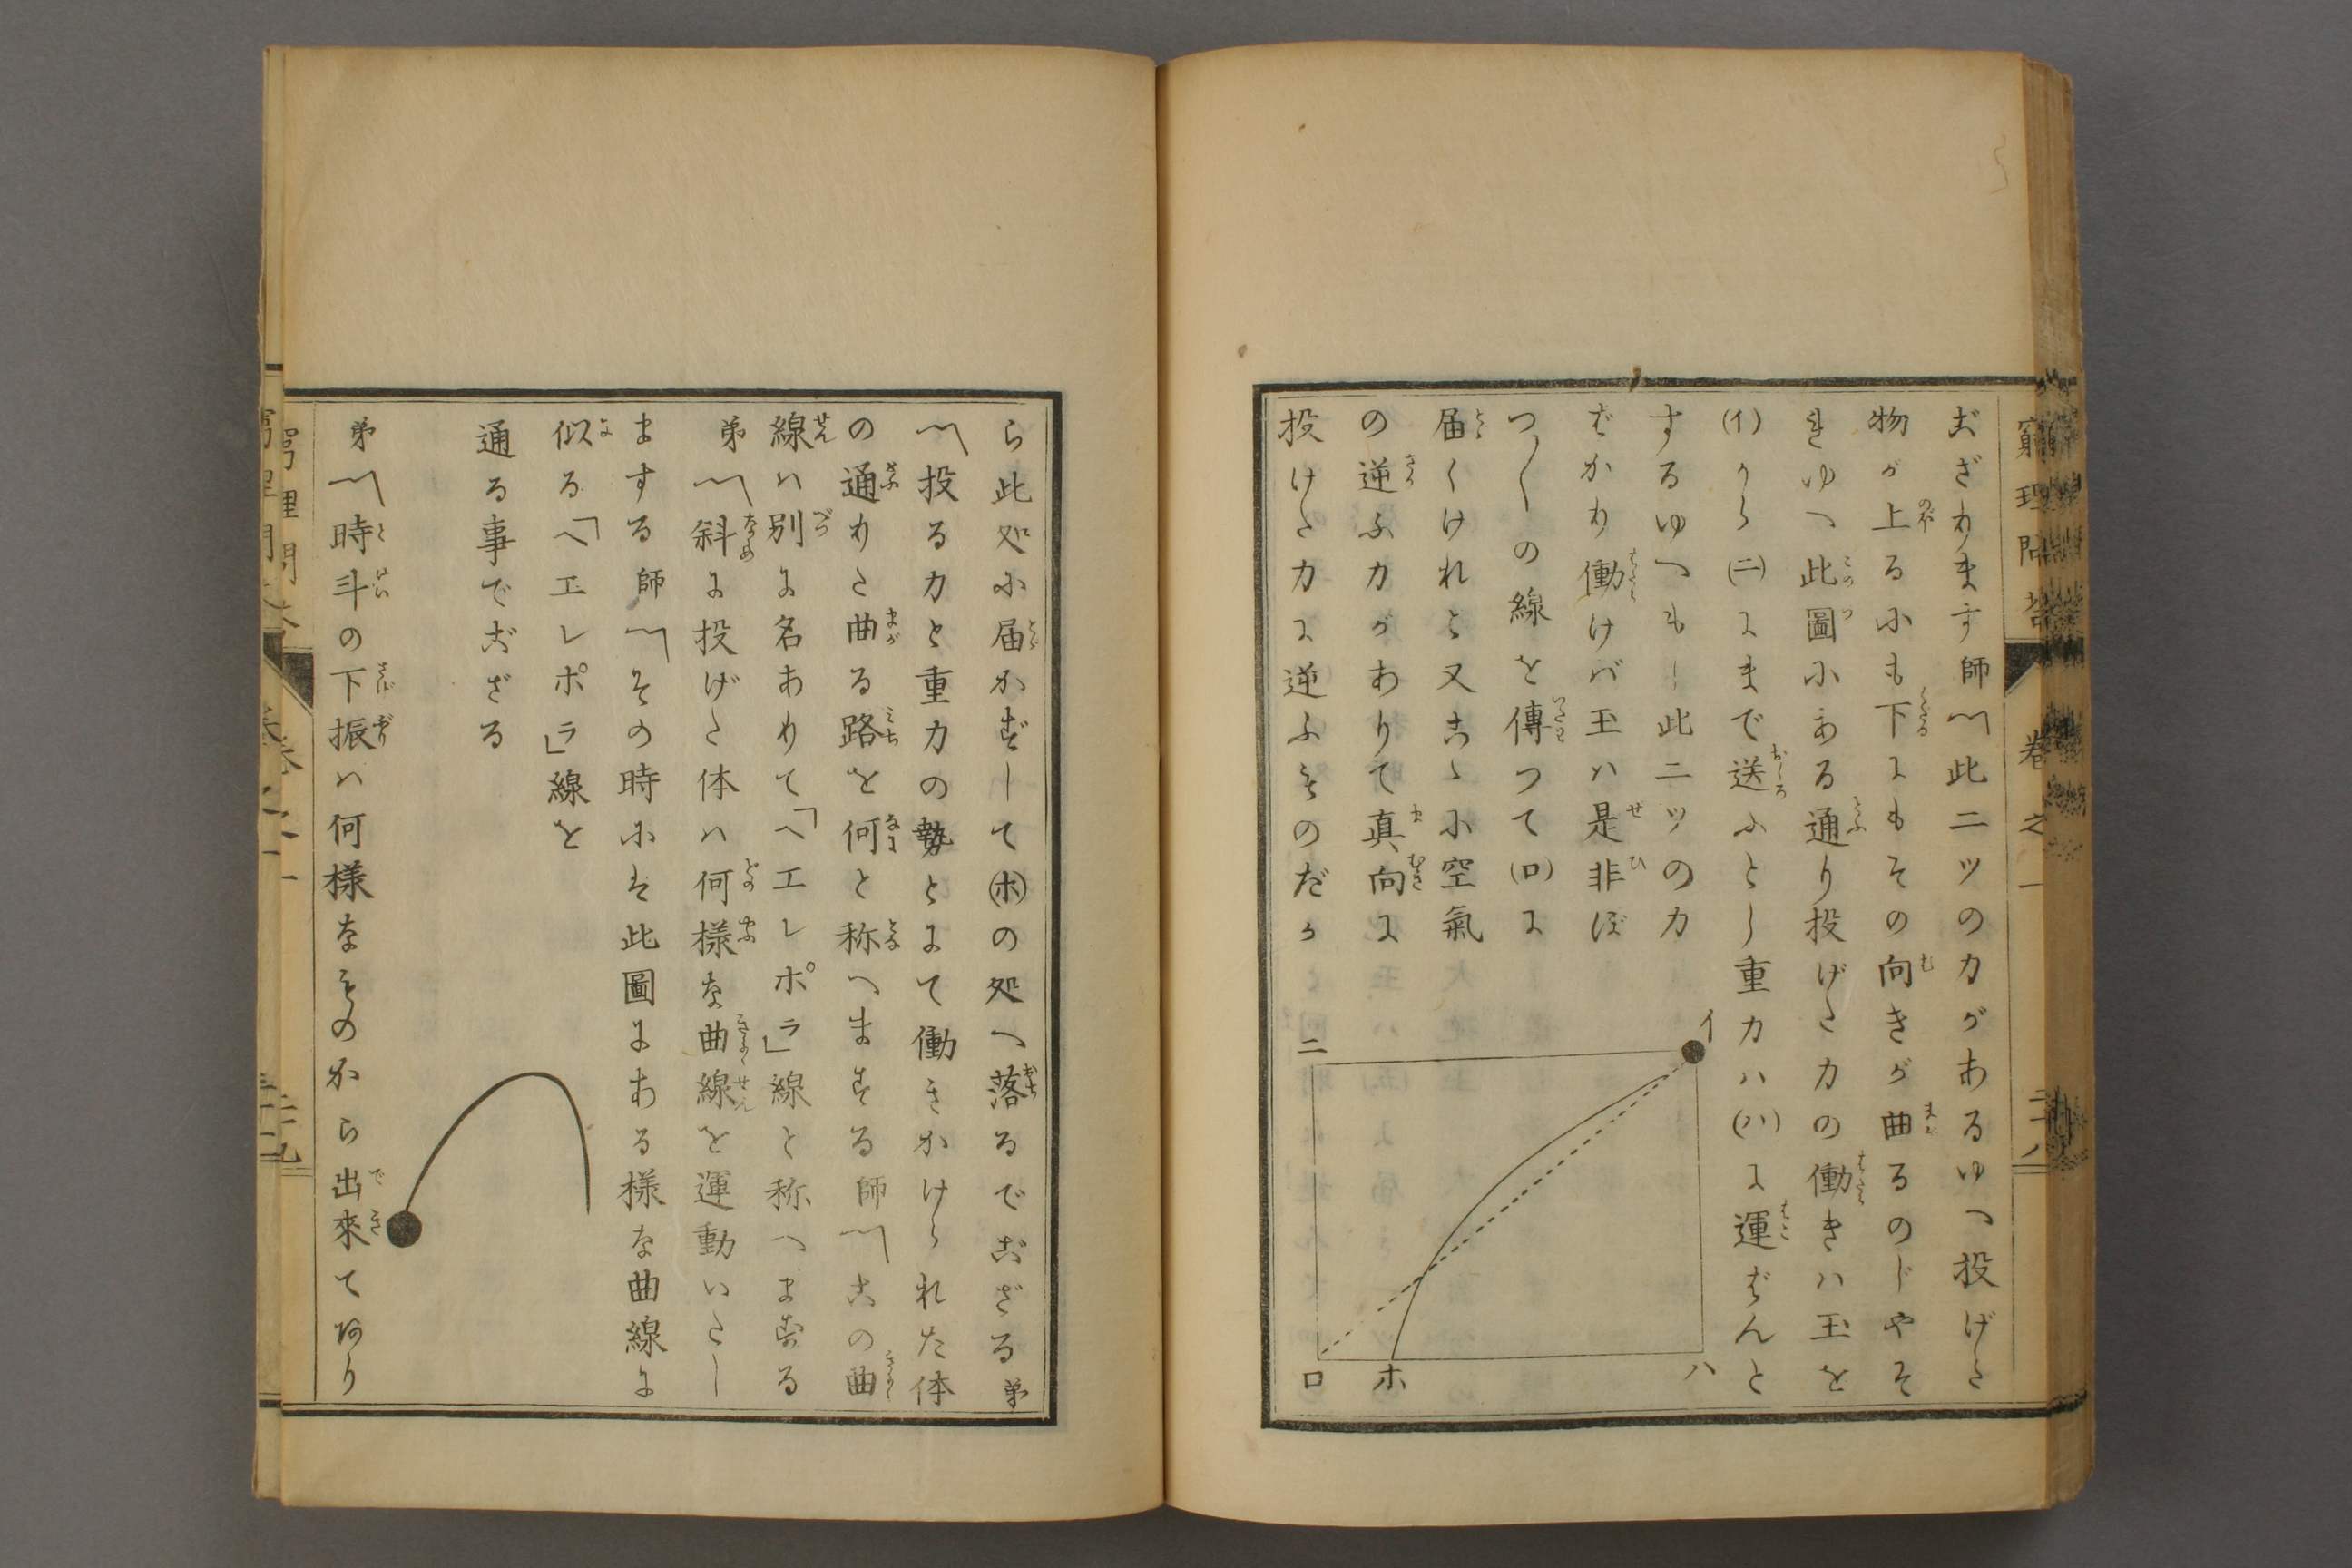 窮理問答 卷之一
ござります師〽此二ツの力があるゆへ投げた
物が上るにも下にもその向きが曲るのじやそ
れゆへ此圖にある通り投げた力の働きハ玉を
(イ)から(ニ)にまで送ふとし重力ハ(ハ)に運ばんと
するゆへもし此二ツの力
ばかり働けバ玉ハ是非ぼ
つ〳〵の線を傳つて(ロ)に
届くけれと又こゝに空氣
の逆ふ力がありて真向に
投けた力に逆ふものだか
イ
ニ
ロ
ホ
ハ
ら此処に届かずして(ホ)の処へ落るでござる弟
〽投る力と重力の勢とにて働きかけられた体
の通りた曲る路を何と称へまする師〽この曲
線ハ別に名ありて「ヘエレポラ」線と称へまする
弟〽斜に投げた体ハ何様な曲線を運動いたし
まする師〽その時にハ此圖にある様な曲線に
似る「ヘエレポラ」線を
通る事でござる
弟〽時斗の下振ハ何様なものから出來てあり